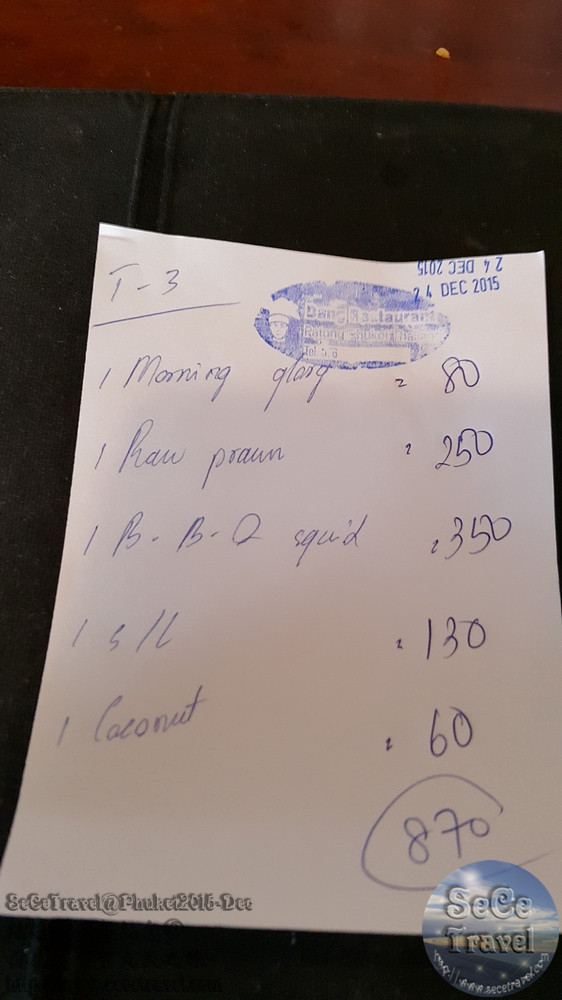 T-3
24 DEC 2015
24 DEC 2015
Dang Restaurant
Patong
Tel.
1 Morning glory = 80
1 Raw prawn = 250
1 B-B-Q squid = 350
1 S/L = 130
1 Coconut = 60
870
SeCeTravel@Phuket2015-Dec
SeCe
Travel
http://www.secetravel.com